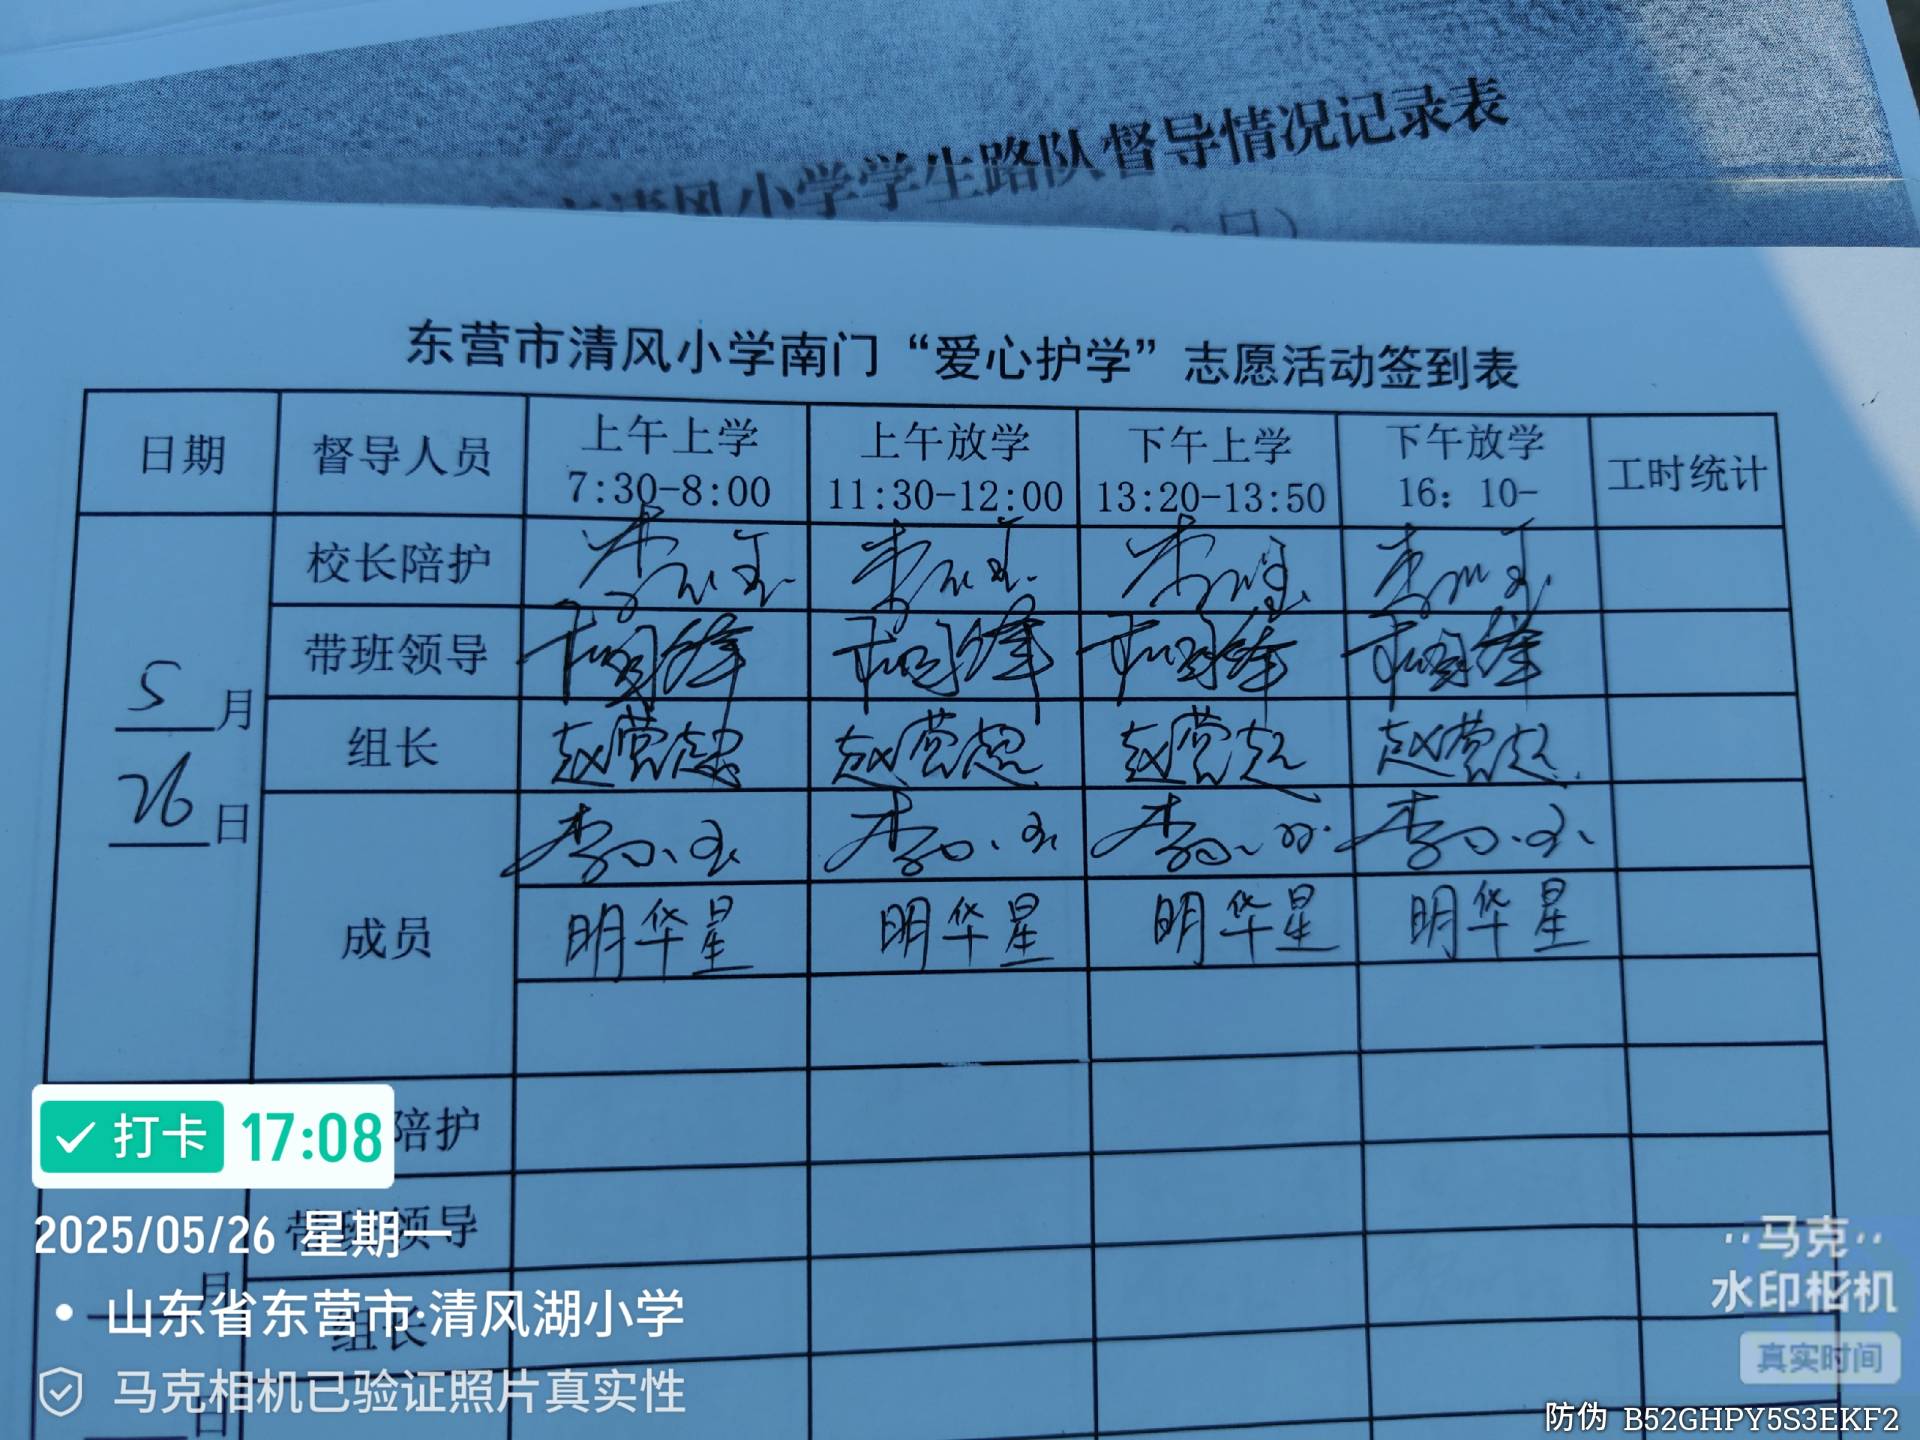 清风小学学生路队督导情况记录表
日）
东营市清风小学南门“爱心护学”志愿活动签到表
日期 督导人员 上午上学 上午放学 下午上学 下午放学 工时统计
7:30-8:00 11:30-12:00 13:20-13:50 16：10-
校长陪护
带班领导
5月
组长 赵营超 赵营超 赵营超 赵营超
26日
李小玉 李小玉 李小玉 李小玉
成员 明华星 明华星 明华星 明华星
陪护
打卡 17:08
带班领导
2025/05/26 星期一
月
山东省东营市·清风湖小学
组长
马克相机已验证照片真实性
日
马克
水印相机
真实时间
防伪 B52GHPY5S3EKF2